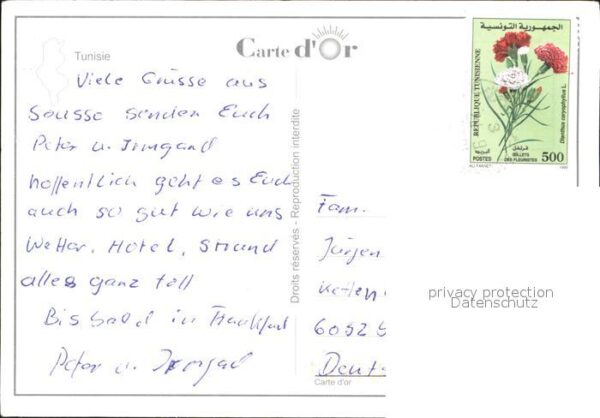 Tunisie
Carte d'Or
Viele Grüsse aus
Sousse senden Euch
Peter u. Irmgard
hoffentlich geht es Euch
auch so gut wie uns
Wetter, Hotel, Strand
alles ganz toll
Bis bald in Frankfurt
Peter u. Irmgard
Droits réservés - Reproduction interdite
Fam.
Jürgen
6052
Deut
Carte d'or
الجمهورية التونسية
REPUBLIQUE TUNISIENNE
Dianthus caryophyllus L.
قرنفل
البريد
POSTES
ŒILLETS
DES FLEURISTES
500
privacy protection
Datenschutz